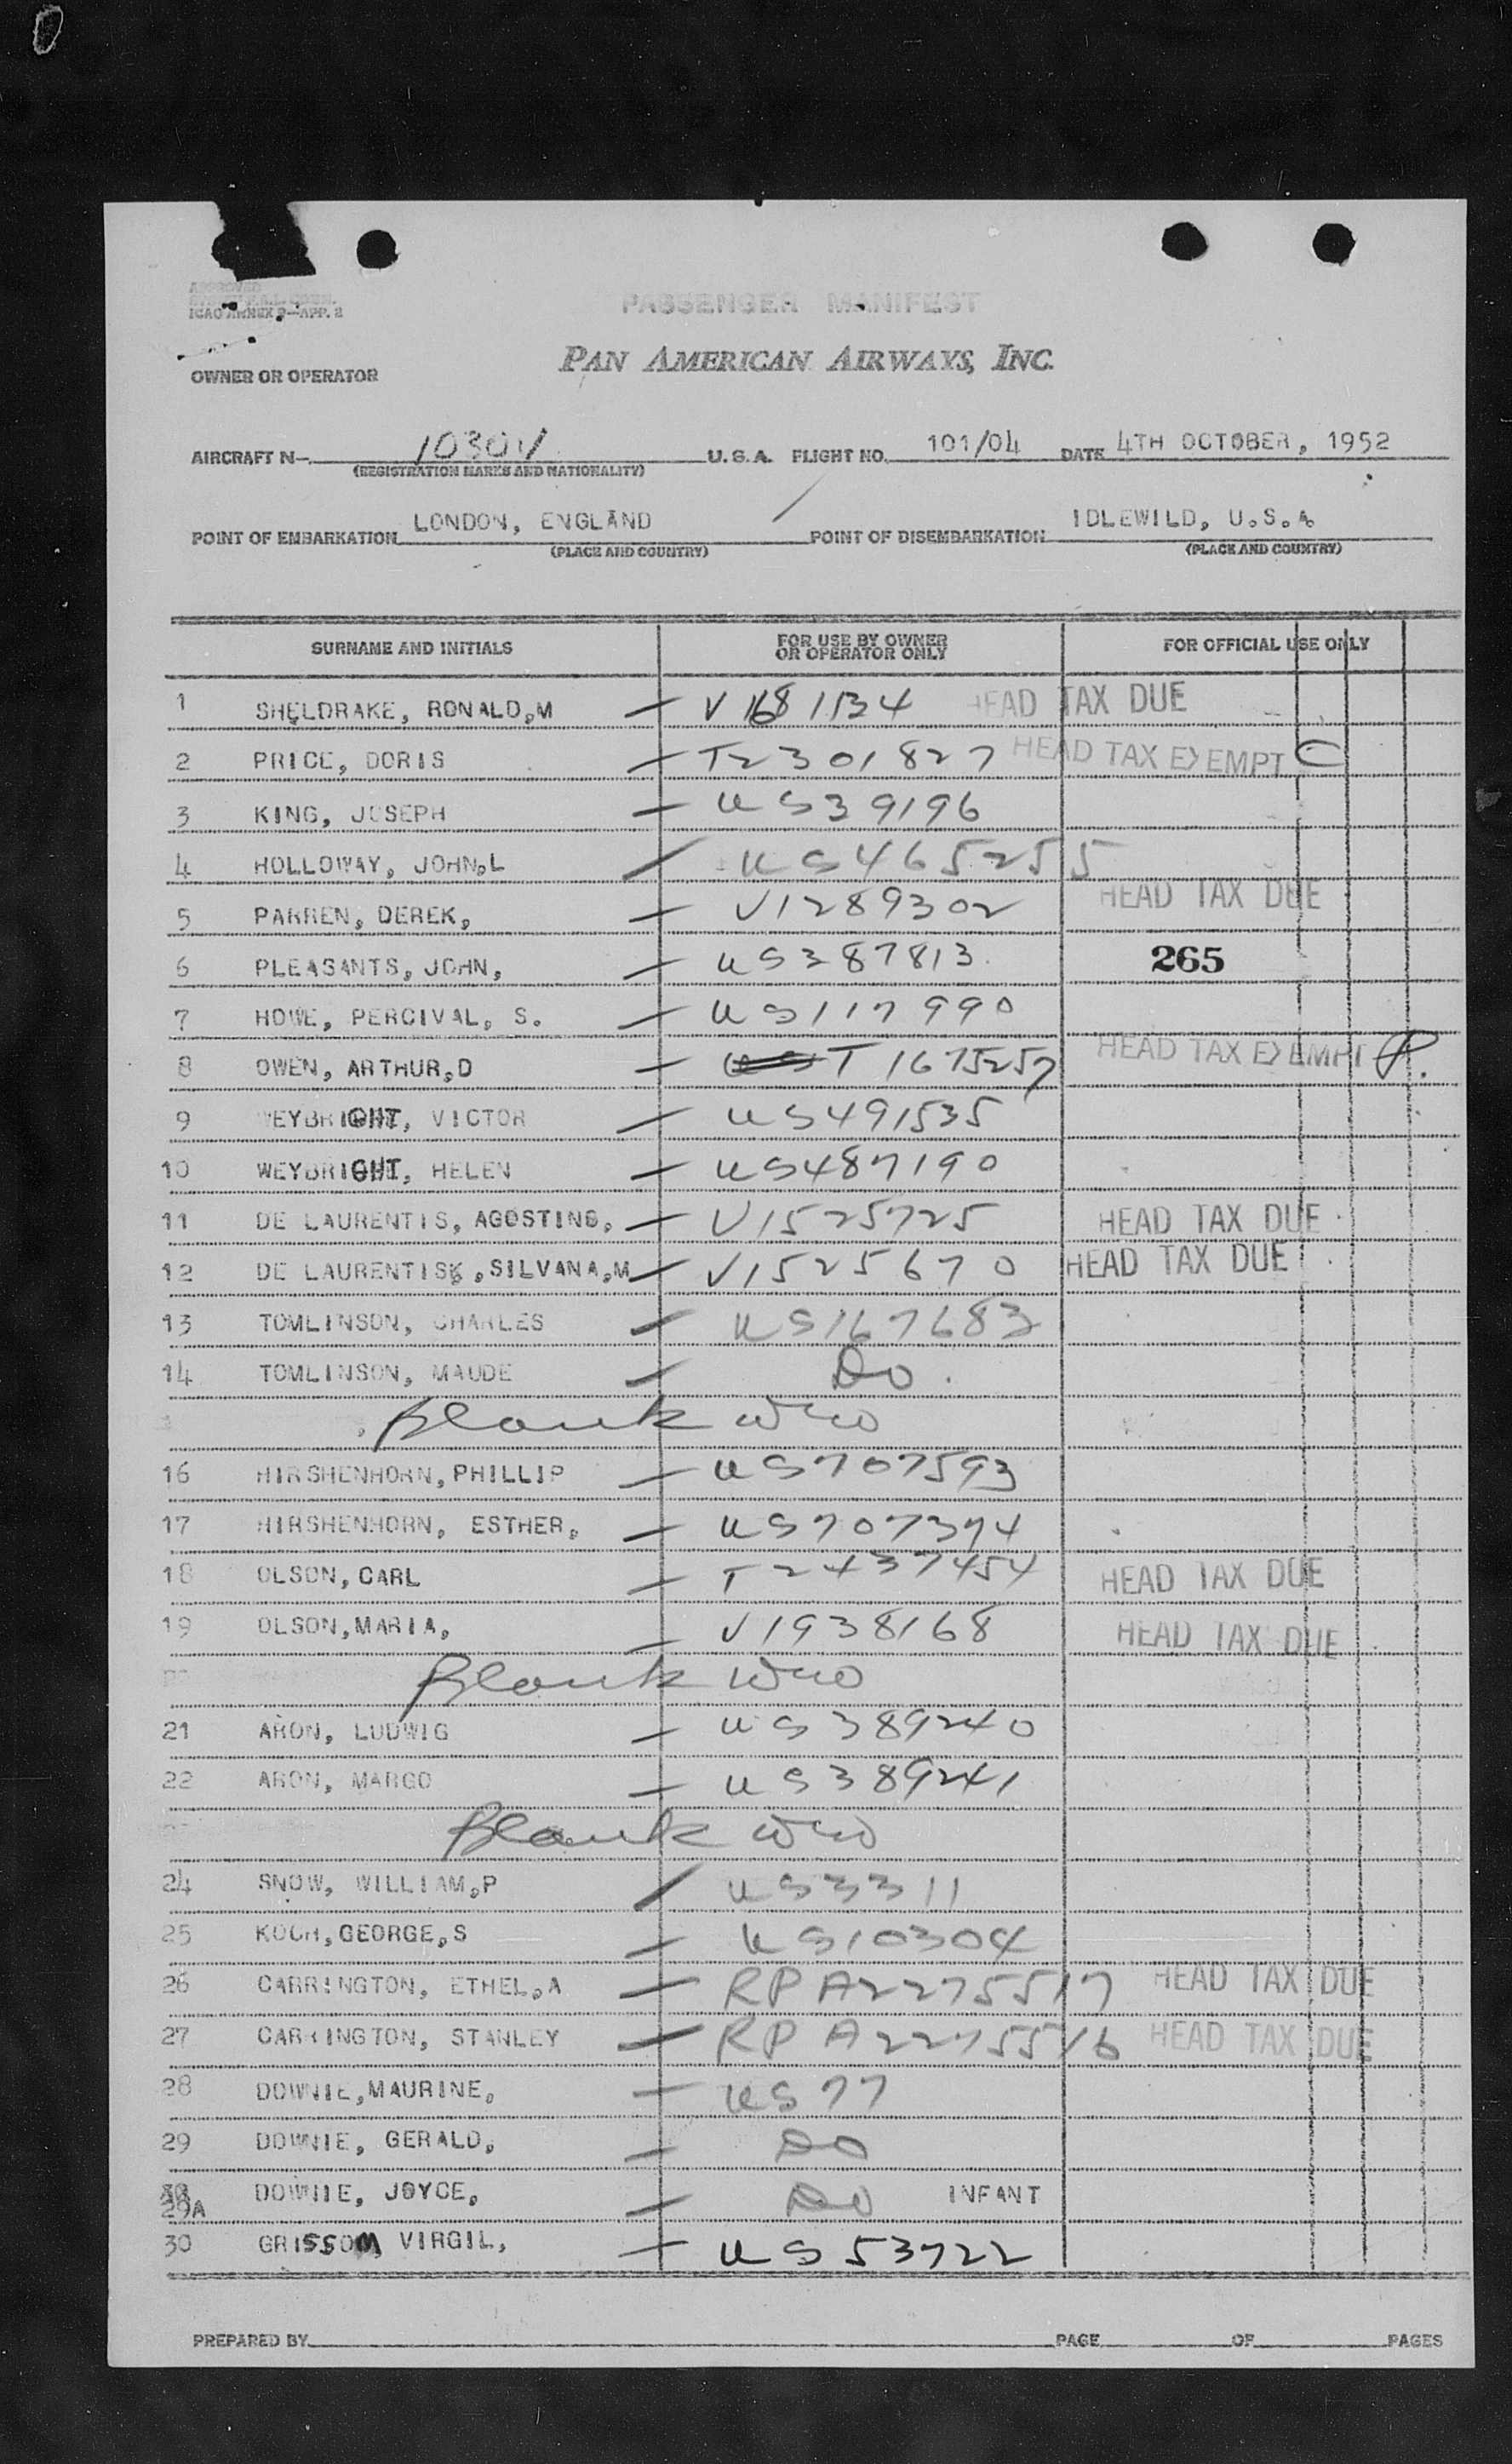 APPROVED
ICAO ANNEX 9—APP. 2
PASSENGER MANIFEST
PAN AMERICAN AIRWAYS, INC.
OWNER OR OPERATOR
AIRCRAFT N- 1030V U.S.A. FLIGHT NO. 101/04 DATE 4TH OCTOBER, 1952
(REGISTRATION MARKS AND NATIONALITY)
POINT OF EMBARKATION LONDON, ENGLAND POINT OF DISEMBARKATION IDLEWILD, U.S.A.
(PLACE AND COUNTRY) (PLACE AND COUNTRY)
SURNAME AND INITIALS FOR USE BY OWNER OR OPERATOR ONLY FOR OFFICIAL USE ONLY
1 SHELDRAKE, RONALD,M — V 1681134 HEAD TAX DUE
2 PRICE, DORIS — T2301827 HEAD TAX EXEMPT C
3 KING, JOSEPH — US39196
4 HOLLOWAY, JOHN,L / US465255
5 PARREN, DEREK, — V1289302 HEAD TAX DUE
6 PLEASANTS, JOHN, — US387813 265
7 HOWE, PERCIVAL, S. — US117990
8 OWEN, ARTHUR,D — T1675257 HEAD TAX EXEMPT P.
9 WEYBRIGHT, VICTOR — US491535
10 WEYBRIGHT, HELEN — US487190
11 DE LAURENTIS, AGOSTINO, — V1525725 HEAD TAX DUE
12 DE LAURENTIS, SILVANA,M — V1525670 HEAD TAX DUE
13 TOMLINSON, CHARLES — US167683
14 TOMLINSON, MAUDE — Do.
Blank
16 HIRSHENHORN, PHILLIP — US707593
17 HIRSHENHORN, ESTHER, — US707374
18 OLSON, CARL — T2437454 HEAD TAX DUE
19 OLSON, MARIA, — V1938168 HEAD TAX DUE
Blank
21 ARON, LUDWIG — US389240
22 ARON, MARGO — US389241
Blank
24 SNOW, WILLIAM,P / US3311
25 KOCH, GEORGE,S — US10304
26 CARRINGTON, ETHEL,A — RP A2275517 HEAD TAX DUE
27 CARRINGTON, STANLEY — RP A2275516 HEAD TAX DUE
28 DOWNIE, MAURINE, — US77
29 DOWNIE, GERALD, — DO
29A DOWNIE, JOYCE, — DO INFANT
30 GRISSOM, VIRGIL, — US53722
PREPARED BY PAGE OF PAGES